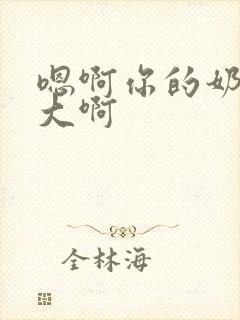 嗯啊你的奶
大啊
全林海